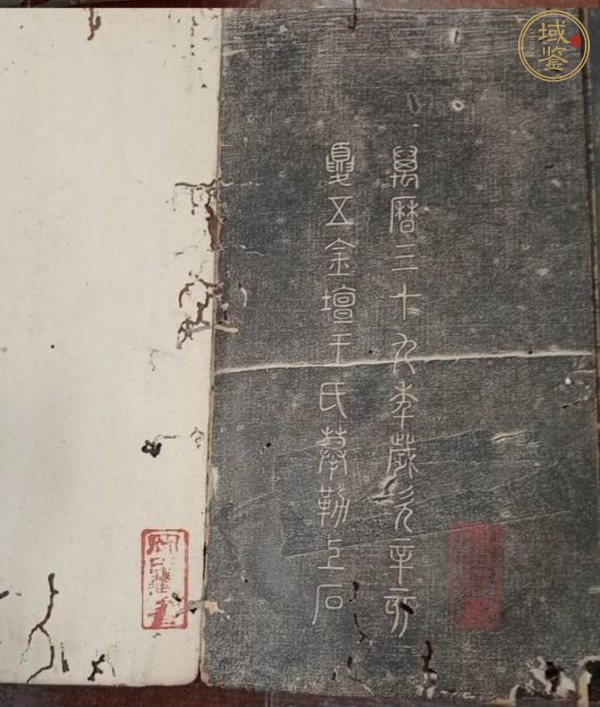 萬曆三十九年歲次辛亥
夏五金壇王氏摹勒上石
域鉴